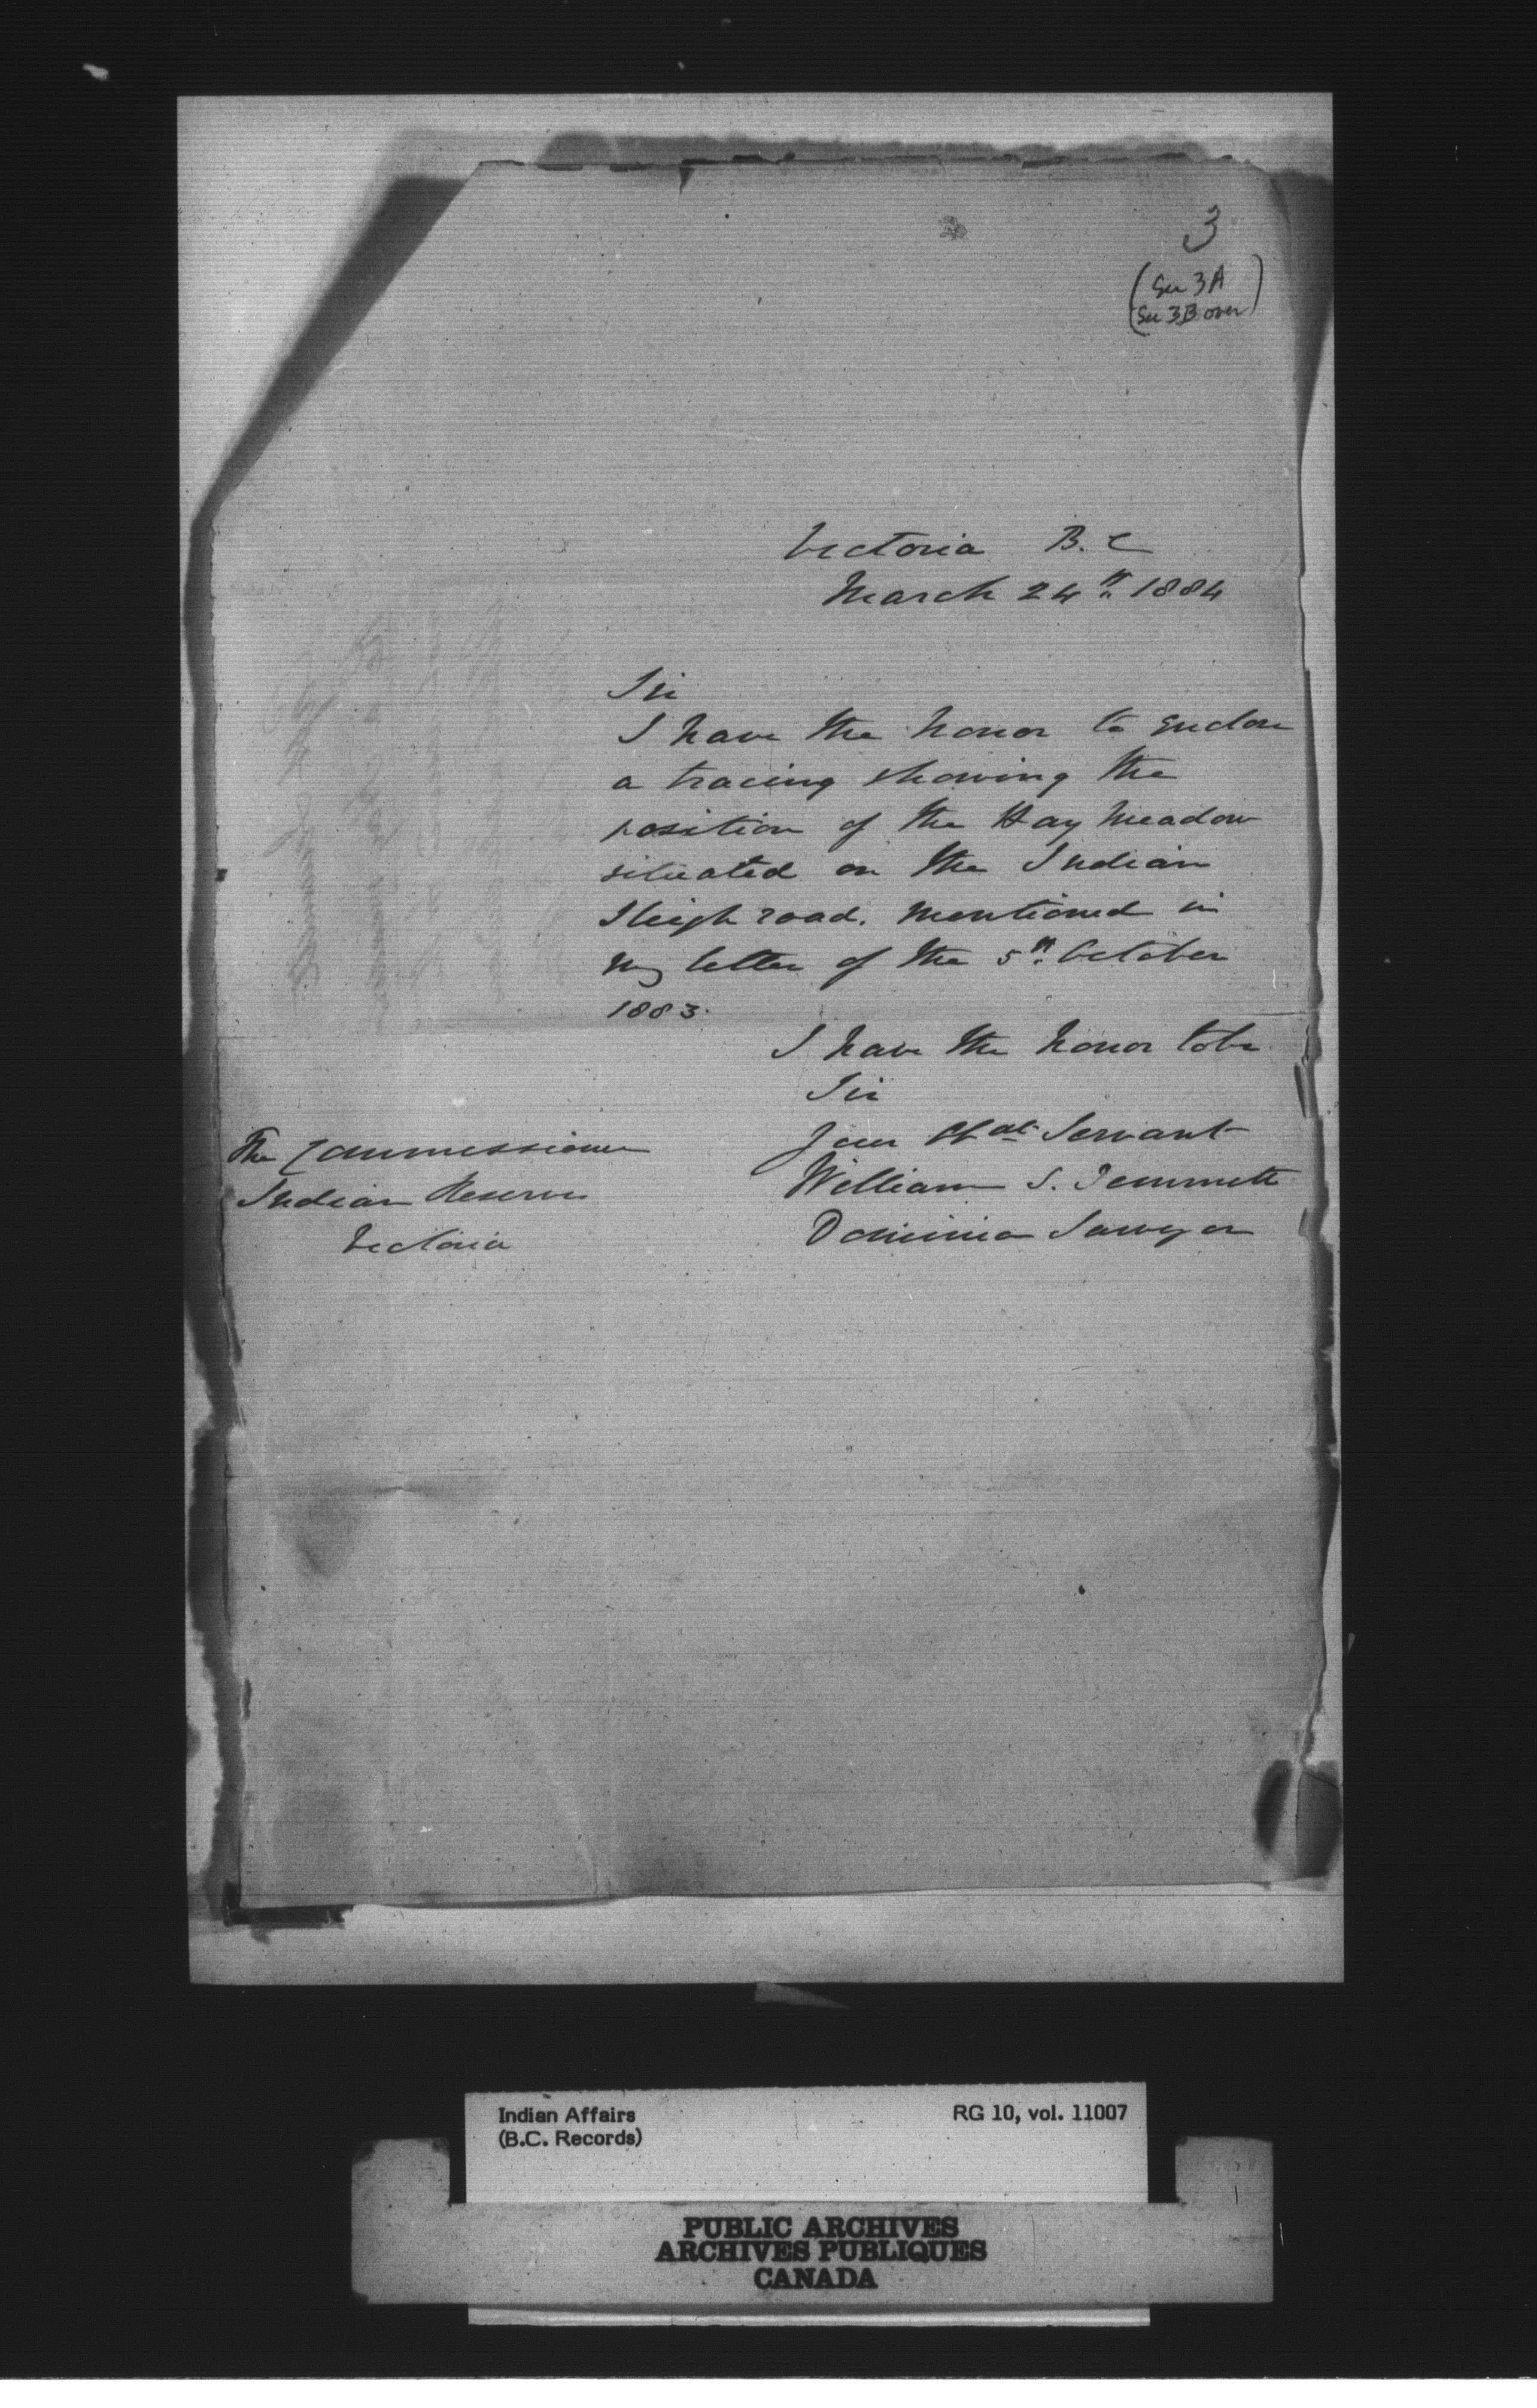 3
(See 3A
See 3B over)
Victoria B.C
March 24th 1884
Sir
I have the honor to enclose
a tracing showing the
position of the Hay Meadow
situated on the Indian
Sleigh road. mentioned in
my letter of the 5th October
1883.
I have the honor to be
Sir
Your Obdt Servant
William S. Jemmett
Dominion Surveyor
The Commissioner
Indian Reserves
Victoria
Indian Affairs
(B.C. Records)
RG 10, vol. 11007
PUBLIC ARCHIVES
ARCHIVES PUBLIQUES
CANADA